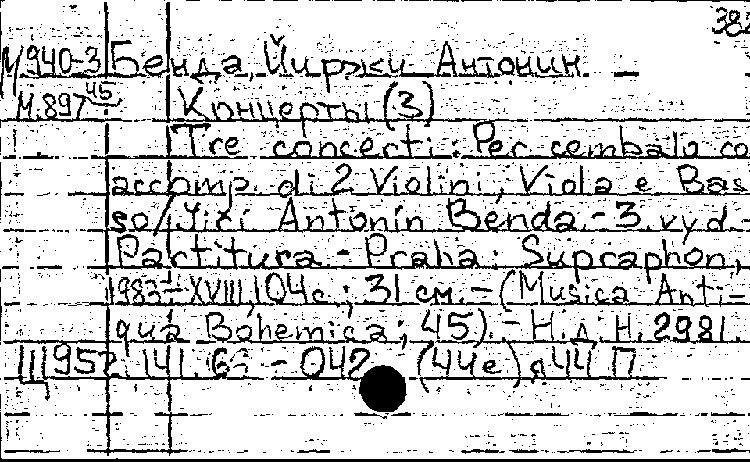 382
М940-3 Бенда, Йиржи Антонин
М.897 45 Концерты (3)
Tre concerti: Per cembalo co
accomp. di 2 Violini, Viola e Bas
so/Jiří Antonín Benda.-3.vyd.-
Partitura.-Praha: Supraphon,
1983.-XVIII,104с.; 31 см.-(Musica Anti-
qua Bohemica; 45).-Н.д. Н. 2981.
Щ952.141.66-042 (44е)я44 П